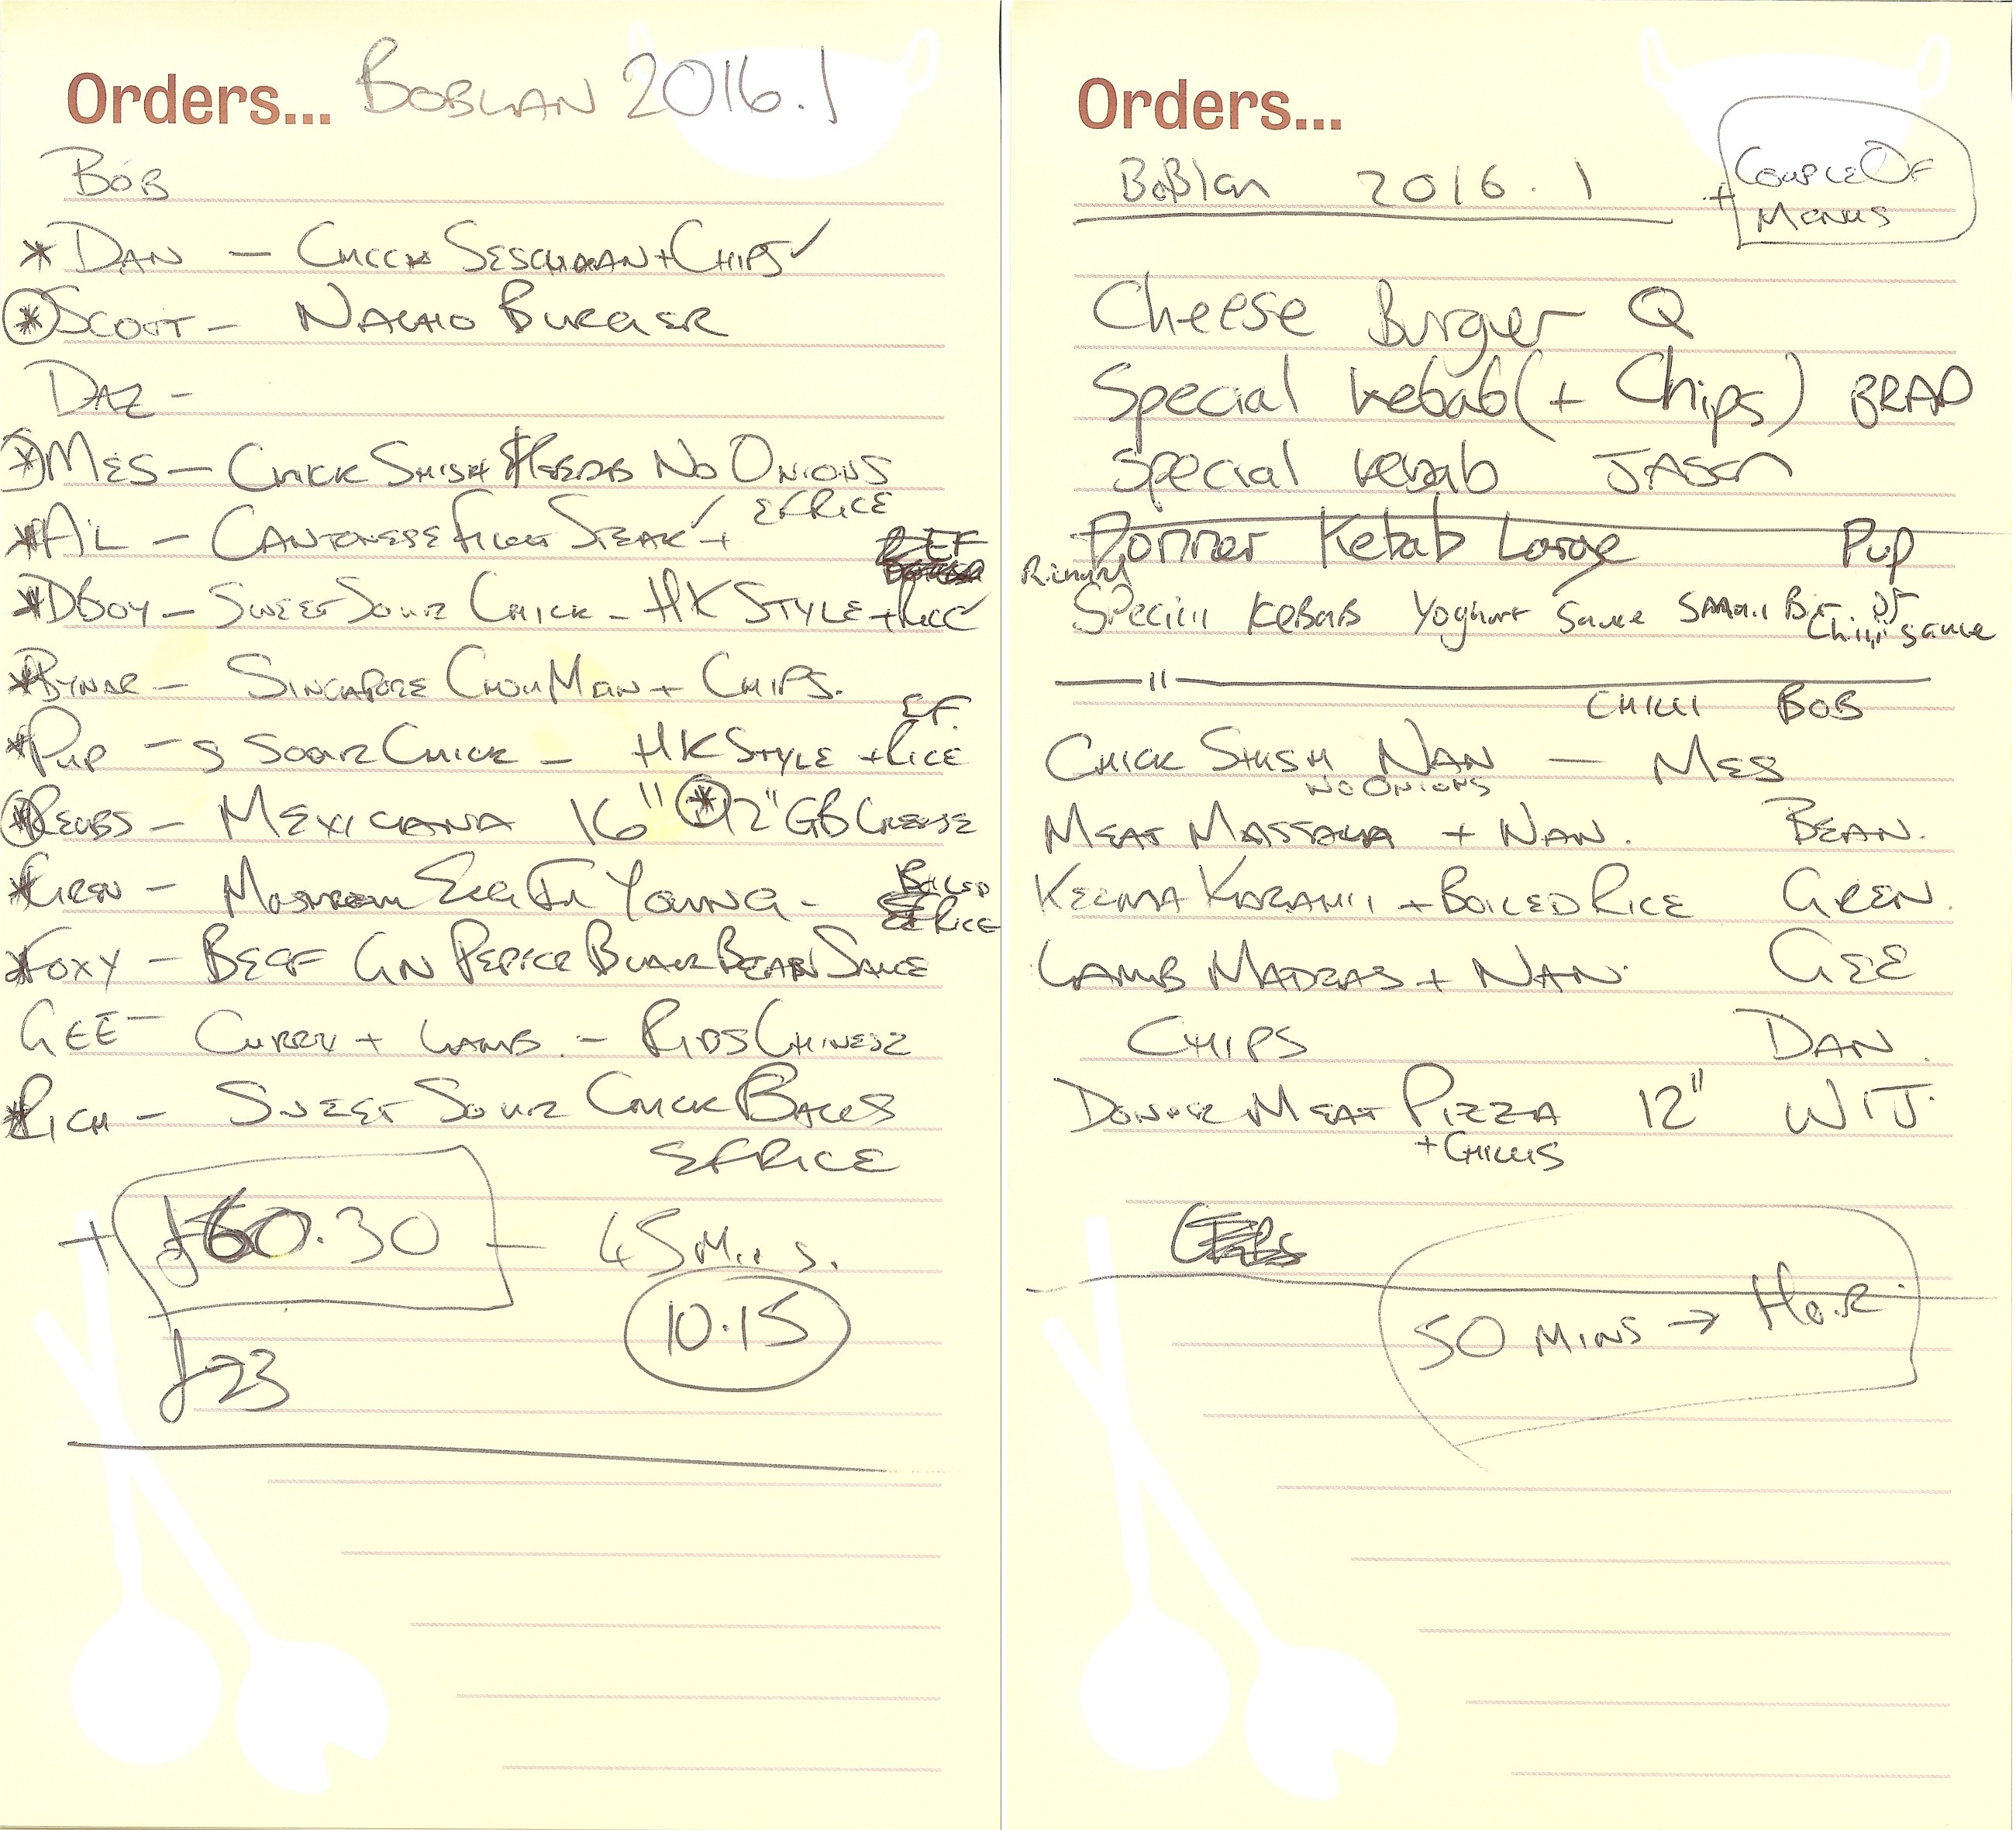 Orders... BOBLAN 2016.1
BOB
* DAN — CHICK SESCHUAN + CHIPS ✓
* SCOTT — NACHO BURGER
DAZ -
* MES — CHICK SHISH HERBS NO ONIONS
* AL — CANTONESE FILLET STEAK ✓ + EFRICE
* DBOY — SWEET SOUR CHICK - HK STYLE + RICE EF
* BYNAR — SINGAPORE CHOW MEIN + CHIPS.
* PUP — S SOUR CHICK — HK STYLE + EF. RICE
* REUBS — MEXICANA 16" * 12" GB CHEESE
* GREN — MUSHROOM EGG FU YOUNG - BOILED RICE
* FOXY — BEEF GN PEPPER BLACK BEAN SAUCE
GEE — CURRY + LAMB. — RIBS CHINESE
* RICH — SWEET SOUR CHICK BALLS
EFRICE
+ £60.30 — 45 MINS.
10.15
£23
Orders...
BoBlan 2016.1
+ COUPLE OF
MENUS
Cheese Burger Q
Special kebab (+ Chips) BRAD
Special kebab JASON
Donner Kebab Large Pup
Special KeBaB Yoghurt Sauce Small Bit of
Chilli sauce
— " —
CHILLI BOB
CHICK SHISH NAN — MES
NO ONIONS
MEAT MASSALLA + NAN. BEAN.
KEEMA KARAHII + BOILED RICE GREN.
LAMB MADRAS + NAN. GEE
CHIPS DAN.
DONNER MEAT PIZZA 12" WIJ.
+ CHILLIS
50 MINS → HOUR